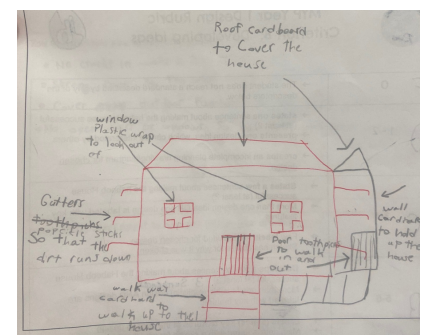 Roof cardboard
to cover the
house
window
Plastic wrap
to look out
of
Gutters
toothpicks
popsicle sticks
So that the
dirt runs down
wall
cardboard
to hold
up the
house
Door toothpicks
to walk
in and
out
walk way
cardboard to
walk up to the
house